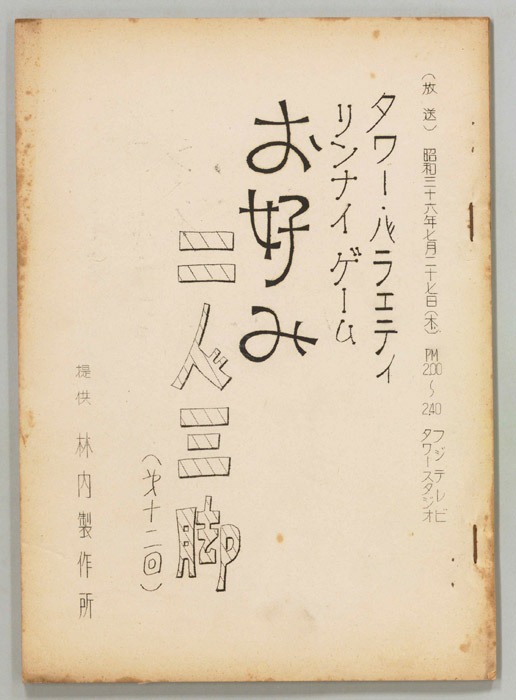 (放送) 昭和三十六年七月二十七日(木) PM 2.00〜2.40 フジテレビ タワースタジオ
タワー・バラエティ
リンナイゲーム
お好み
二人三脚
(第十二回)
提供 林内製作所